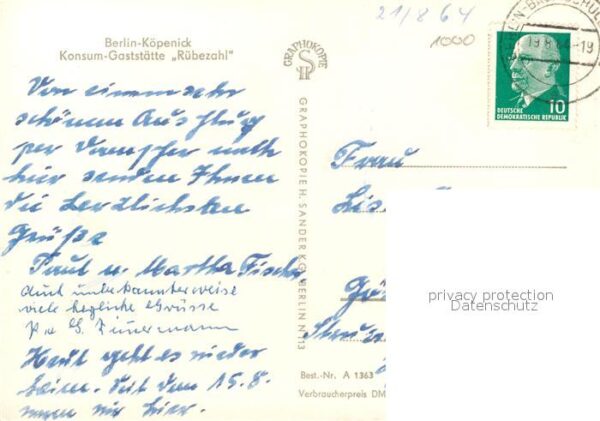 Berlin-Köpenick
Konsum-Gaststätte „Rübezahl"
Von einem sehr
schönen Ausflug
per Dampfer nach
hier senden Ihnen
die herzlichsten
Grüße
Paul u. Martha Fischer
Auch unbekannterweise
viele herzliche Grüsse
Heut geht es wieder
heim. Seit dem 15.8.
waren wir hier.
GRAPHOKOPIE
GRAPHOKOPIE H. SANDER KG. BERLIN N 113
21/8 64
1000
19.8.64-19
10
DEUTSCHE
DEMOKRATISCHE REPUBLIK
Frau
privacy protection
Datenschutz
Best.-Nr. A 1363
Verbraucherpreis DM